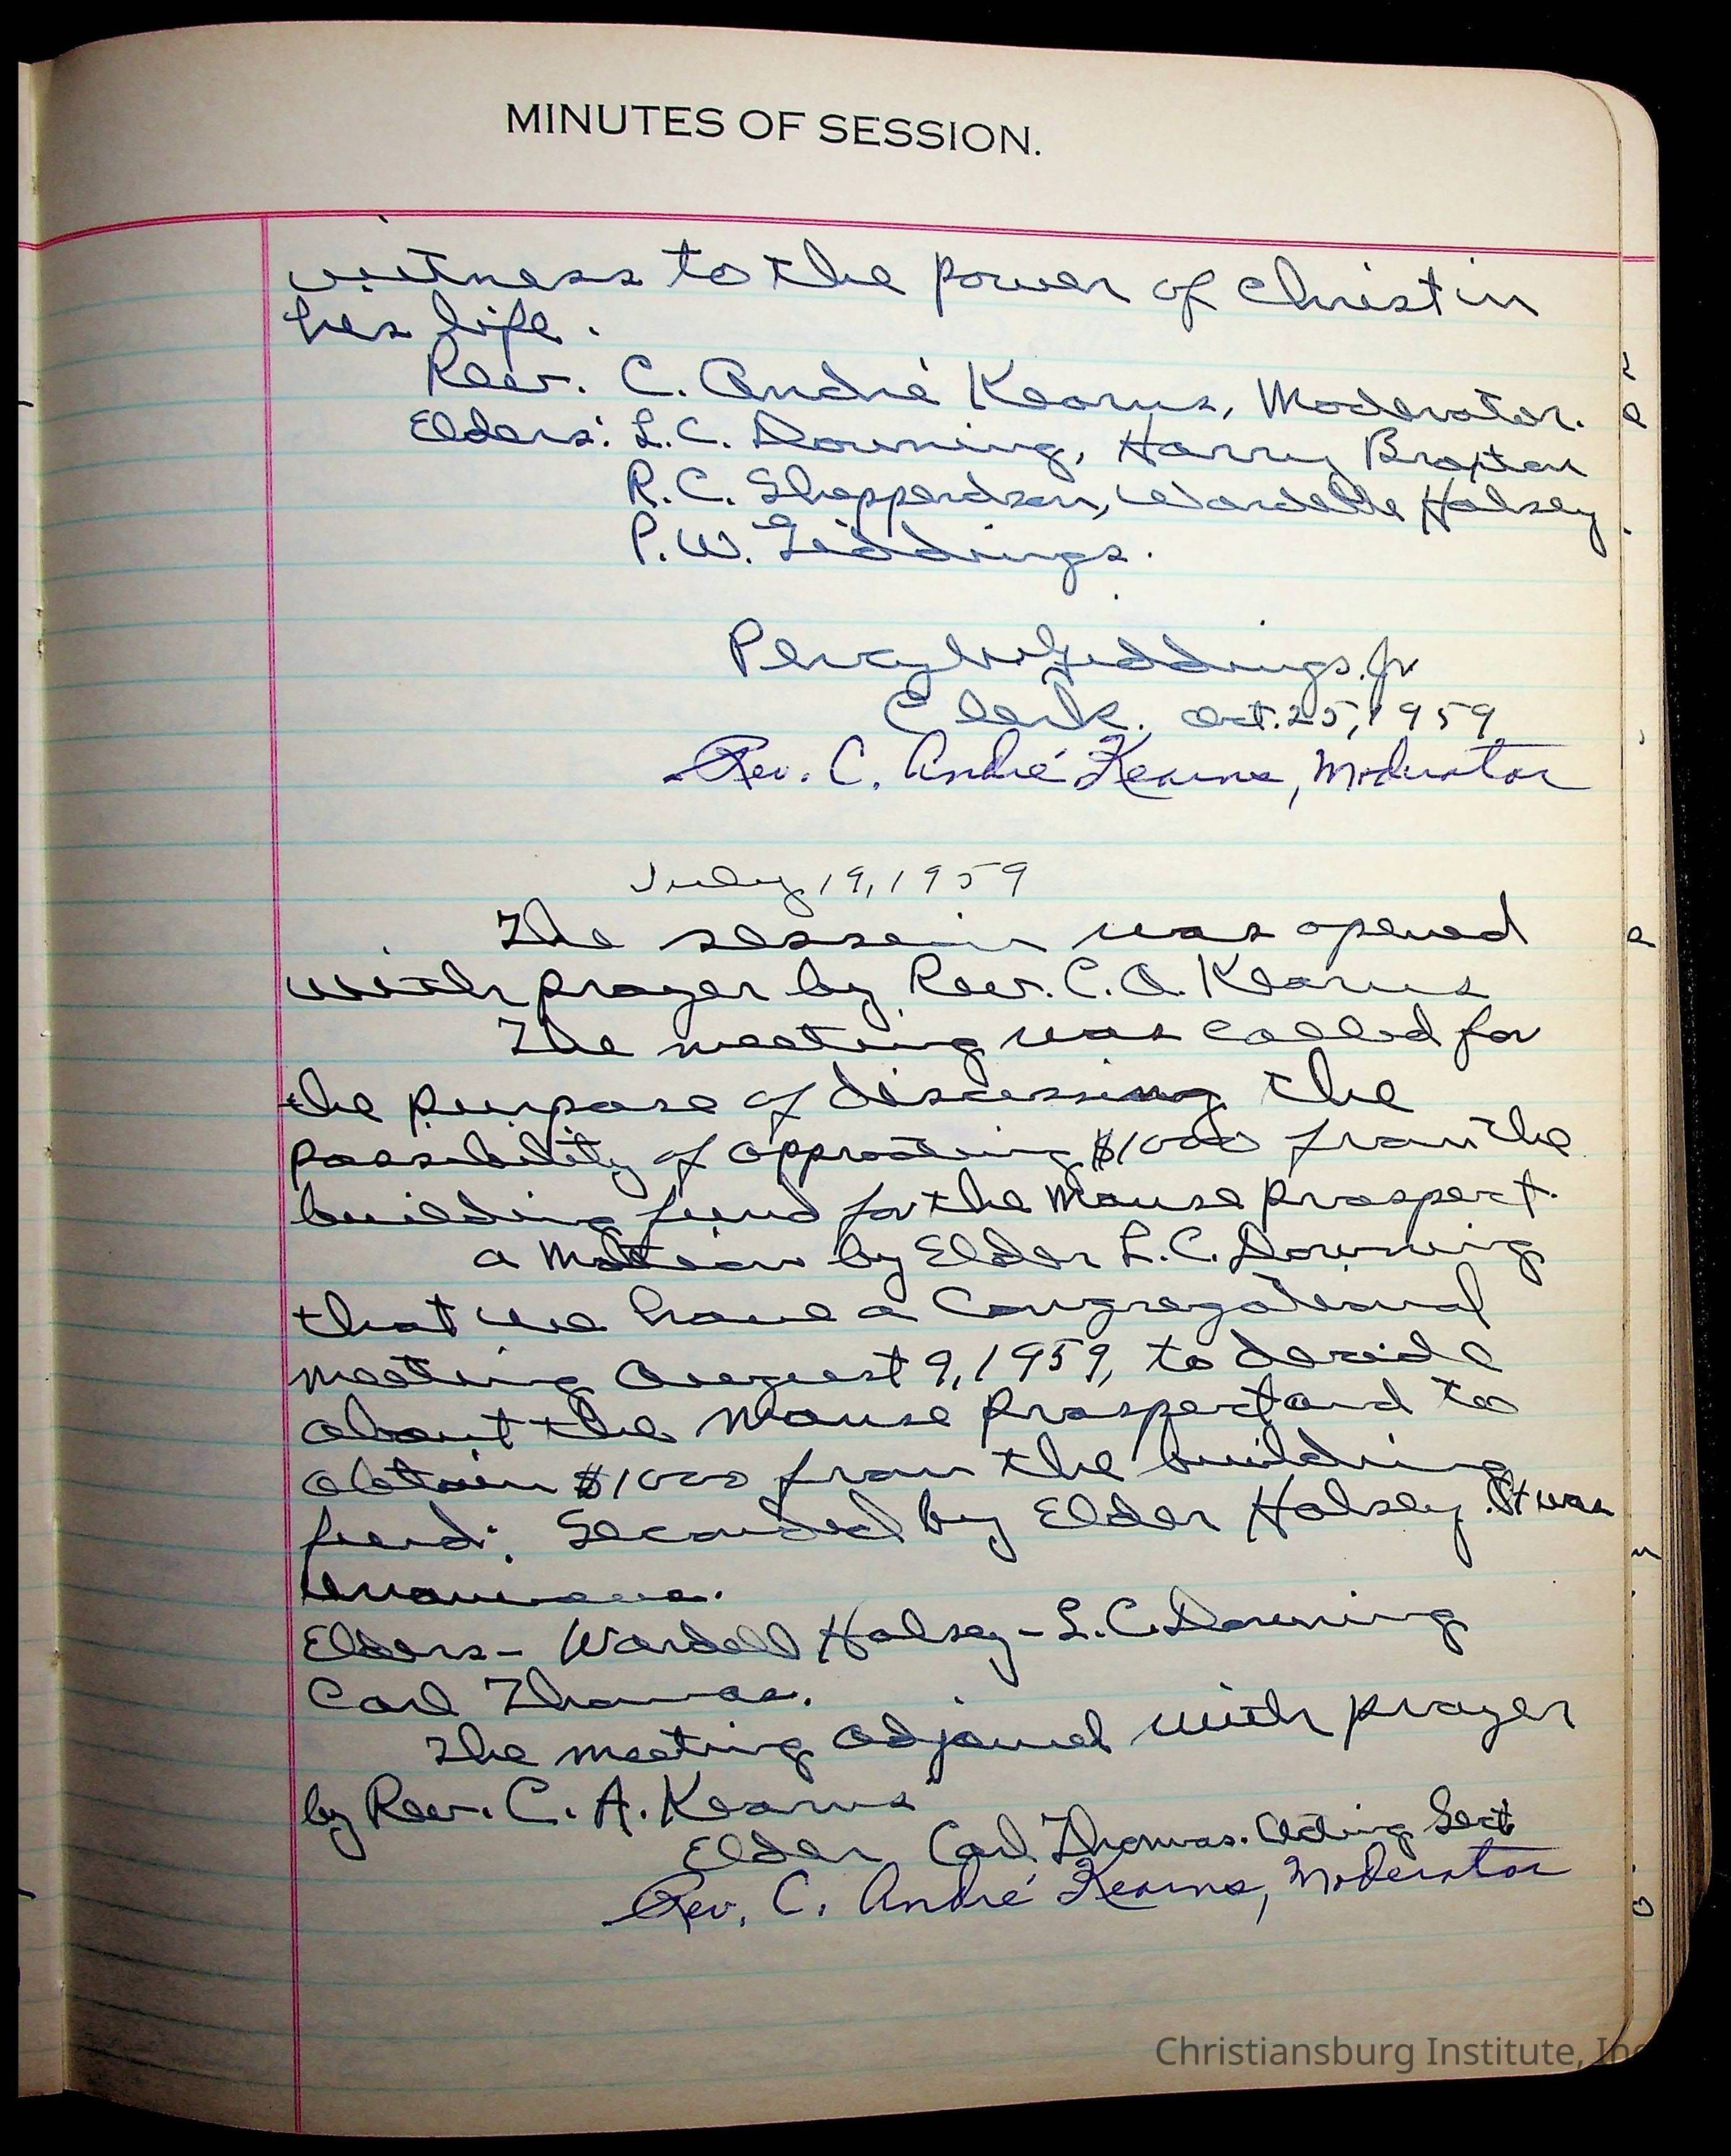 MINUTES OF SESSION.
witness to the power of Christ in
his life.
Rev. C. André Kearns, Moderator.
Elders: L.C. Downing, Harry Braxton
R.C. Shepperdson, Wardelle Halsey
P.W. Giddings.
Percy W. Giddings. Jr
Clerk. Oct. 25, 1959
Rev. C. André Kearns, Moderator
July 19, 1959
The session was opened
with prayer by Rev. C. A. Kearns
The meeting was called for
the purpose of discussing the
possibility of $1000 from the
building fund for the Manse prospect.
a Motion by Elder L.C. Downing
that we have a Congregational
meeting August 9, 1959, to decide
about the Manse prospect and to
obtain $1000 from the building
fund: Seconded by Elder Halsey. It was
Elders- Wardell Halsey - L.C. Downing
Carl Thomas.
The meeting adjourned with prayer
by Rev. C. A. Kearns
Elder Carl Thomas. Acting Sect
Rev. C. André Kearns, Moderator
Christiansburg Institute, Inc